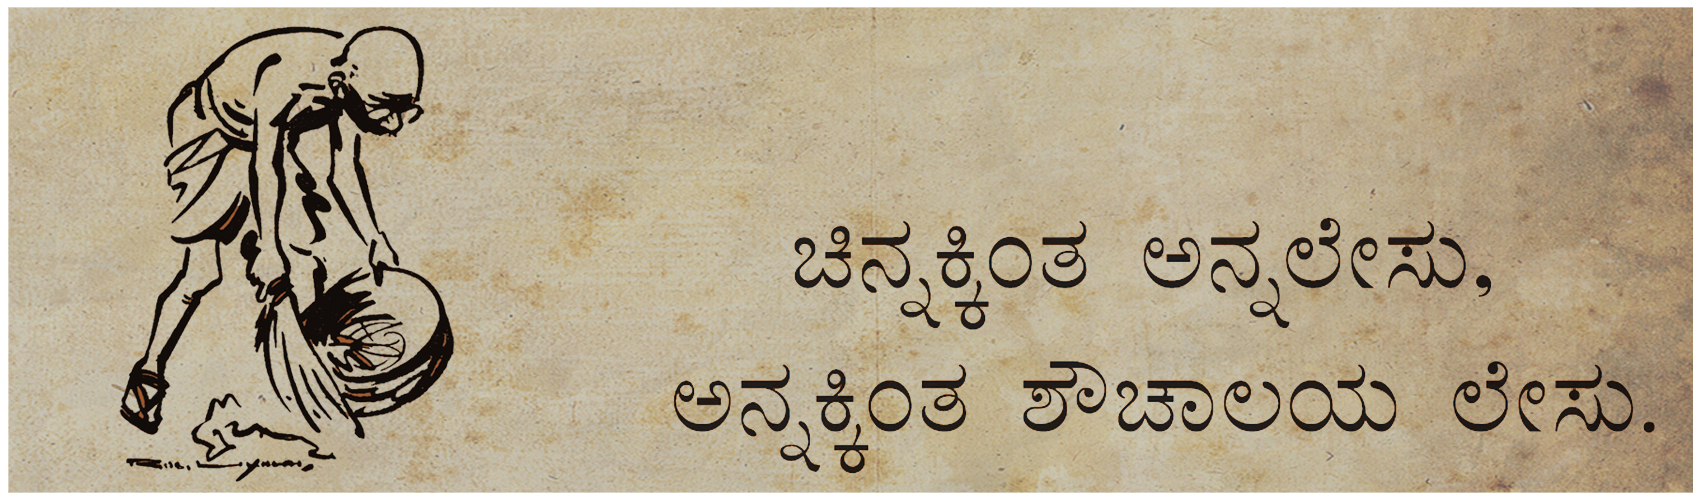 ಚಿನ್ನಕ್ಕಿಂತ ಅನ್ನಲೇಸು,
ಅನ್ನಕ್ಕಿಂತ ಶೌಚಾಲಯ ಲೇಸು.